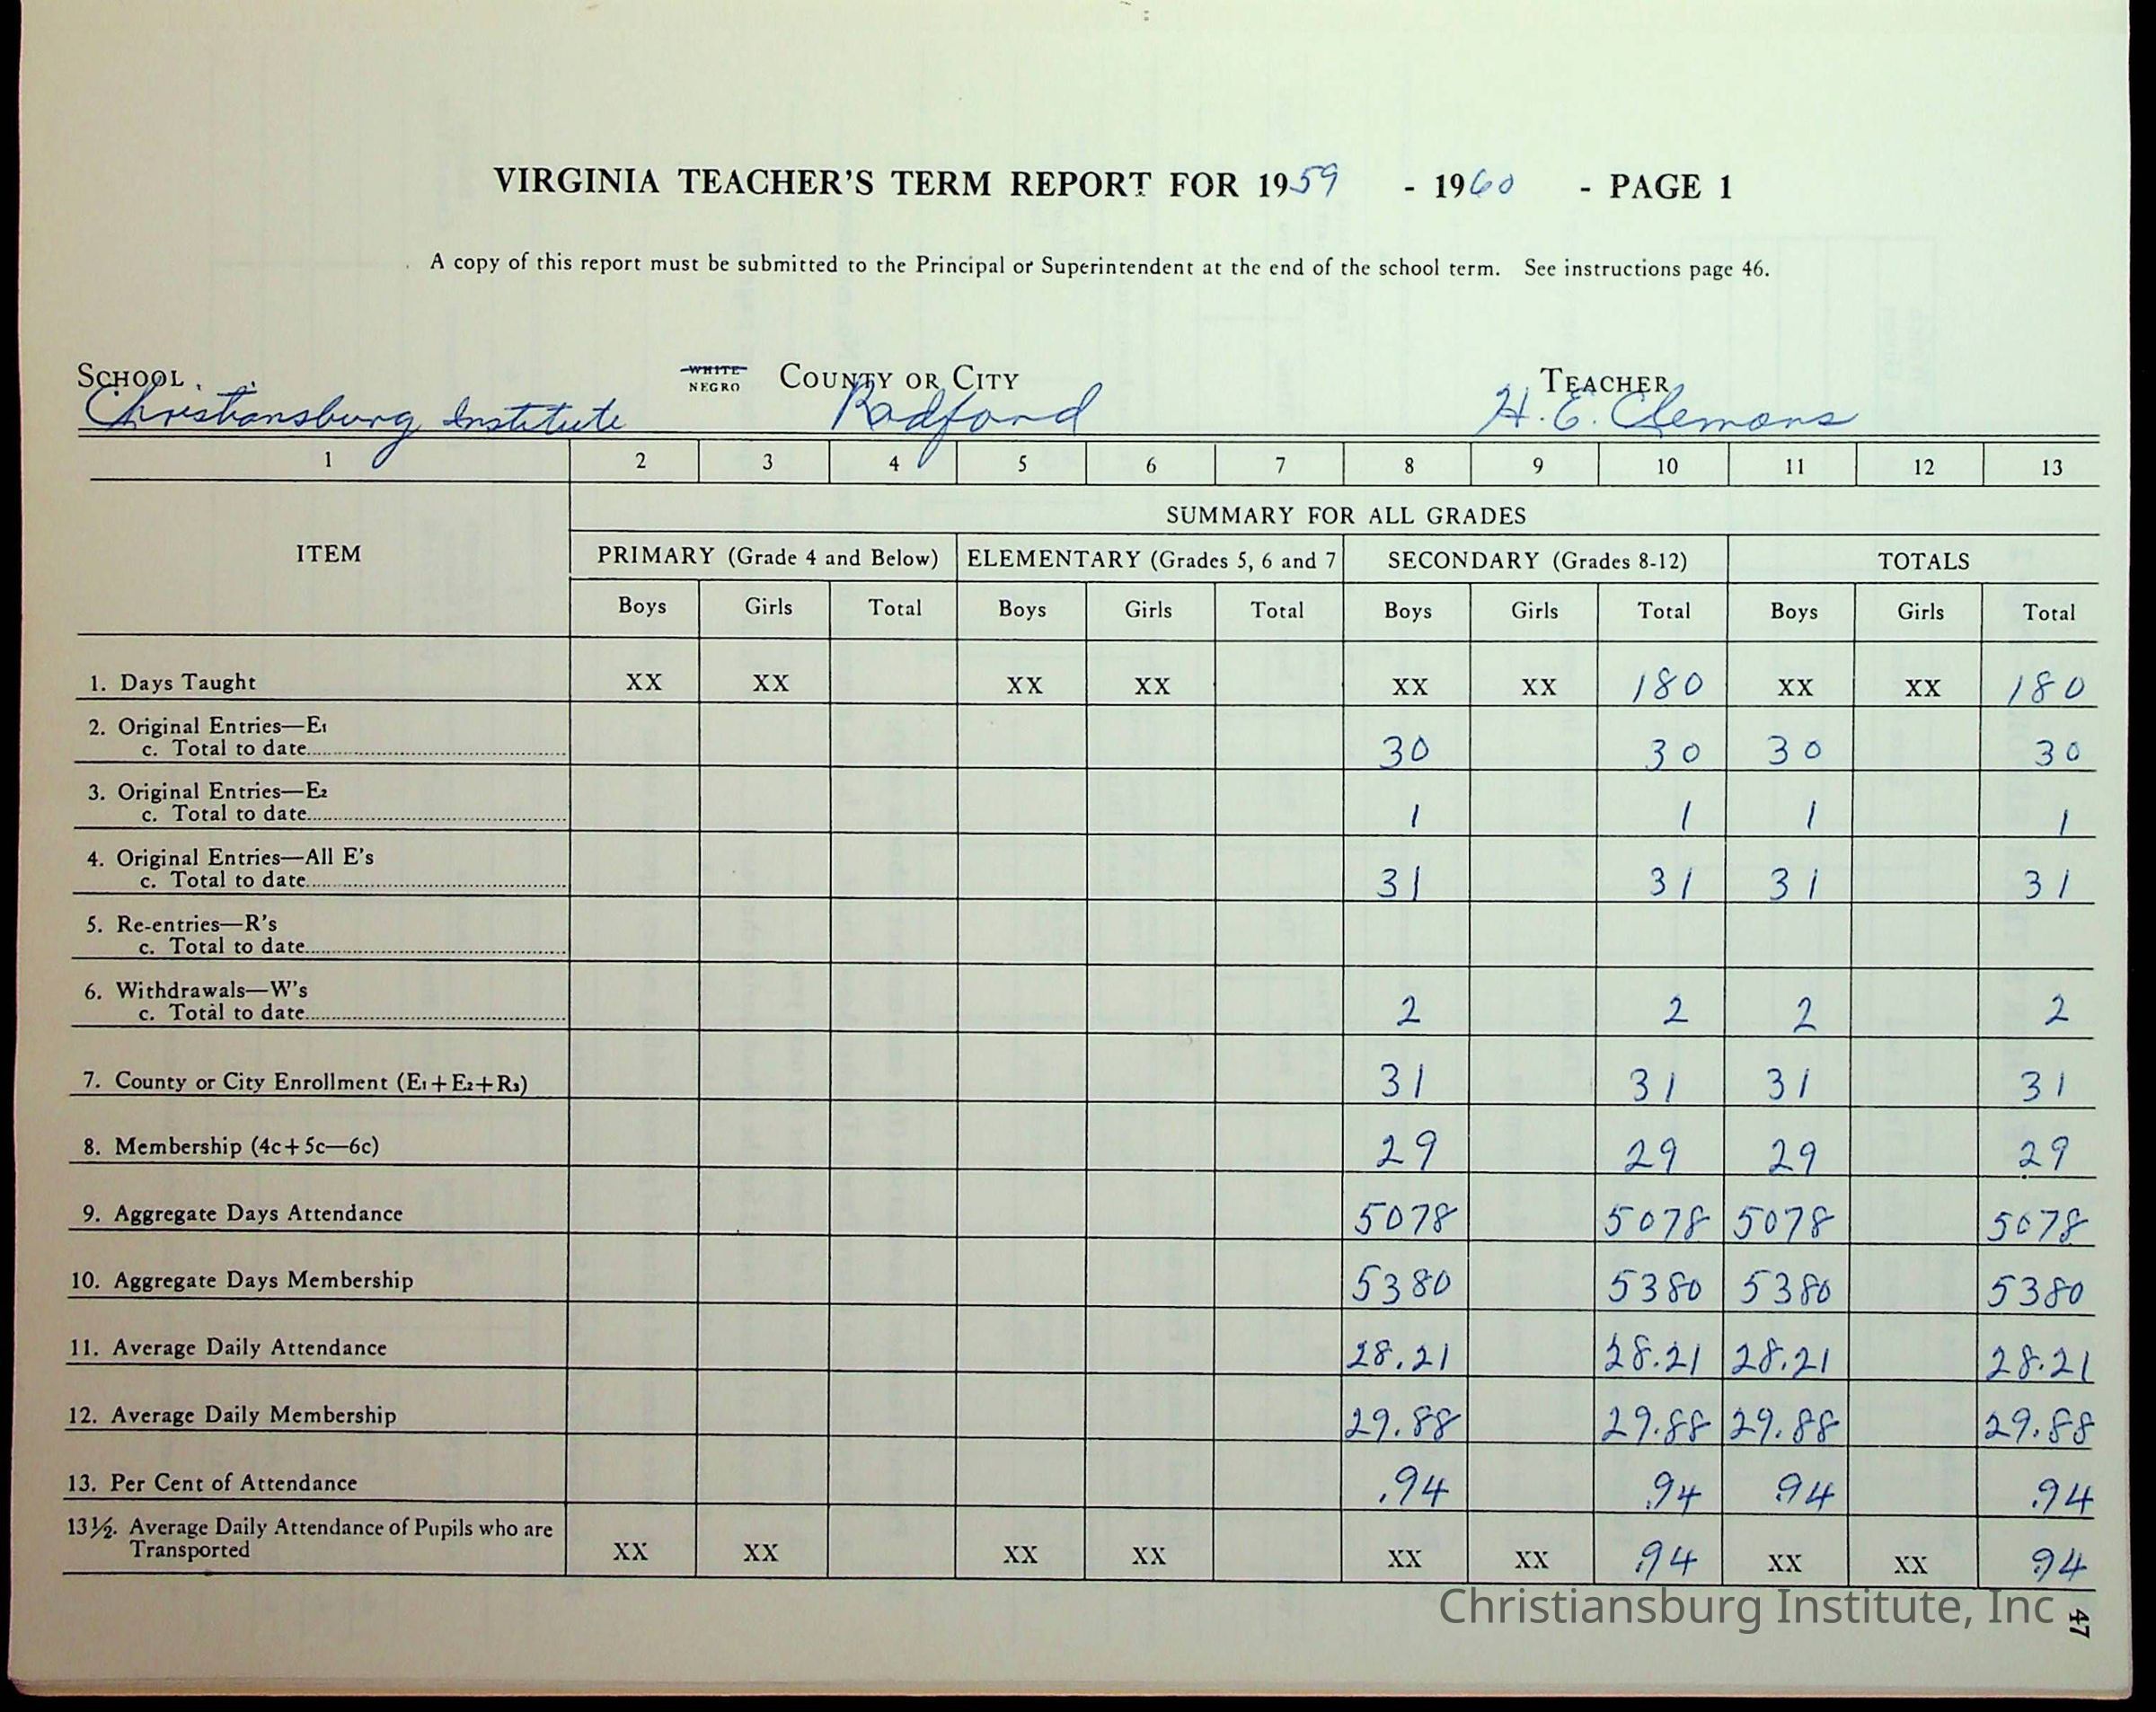 VIRGINIA TEACHER'S TERM REPORT FOR 1959 - 1960 - PAGE 1
A copy of this report must be submitted to the Principal or Superintendent at the end of the school term. See instructions page 46.
SCHOOL WHITE NEGRO COUNTY OR CITY TEACHER
Christiansburg Institute Radford H. E. Clemons
1 2 3 4 5 6 7 8 9 10 11 12 13
SUMMARY FOR ALL GRADES
ITEM PRIMARY (Grade 4 and Below) ELEMENTARY (Grades 5, 6 and 7 SECONDARY (Grades 8-12) TOTALS
Boys Girls Total Boys Girls Total Boys Girls Total Boys Girls Total
1. Days Taught XX XX XX XX XX XX 180 XX XX 180
2. Original Entries—E1
c. Total to date 30 30 30 30
3. Original Entries—E2
c. Total to date 1 1 1 1
4. Original Entries—All E's
c. Total to date 31 31 31 31
5. Re-entries—R's
c. Total to date
6. Withdrawals—W's
c. Total to date 2 2 2 2
7. County or City Enrollment (E1+E2+R3) 31 31 31 31
8. Membership (4c+5c—6c) 29 29 29 29
9. Aggregate Days Attendance 5078 5078 5078 5078
10. Aggregate Days Membership 5380 5380 5380 5380
11. Average Daily Attendance 28.21 28.21 28.21 28.21
12. Average Daily Membership 29.88 29.88 29.88 29.88
13. Per Cent of Attendance .94 .94 .94 .94
13½. Average Daily Attendance of Pupils who are
Transported XX XX XX XX XX XX .94 XX XX 94
Christiansburg Institute, Inc
47